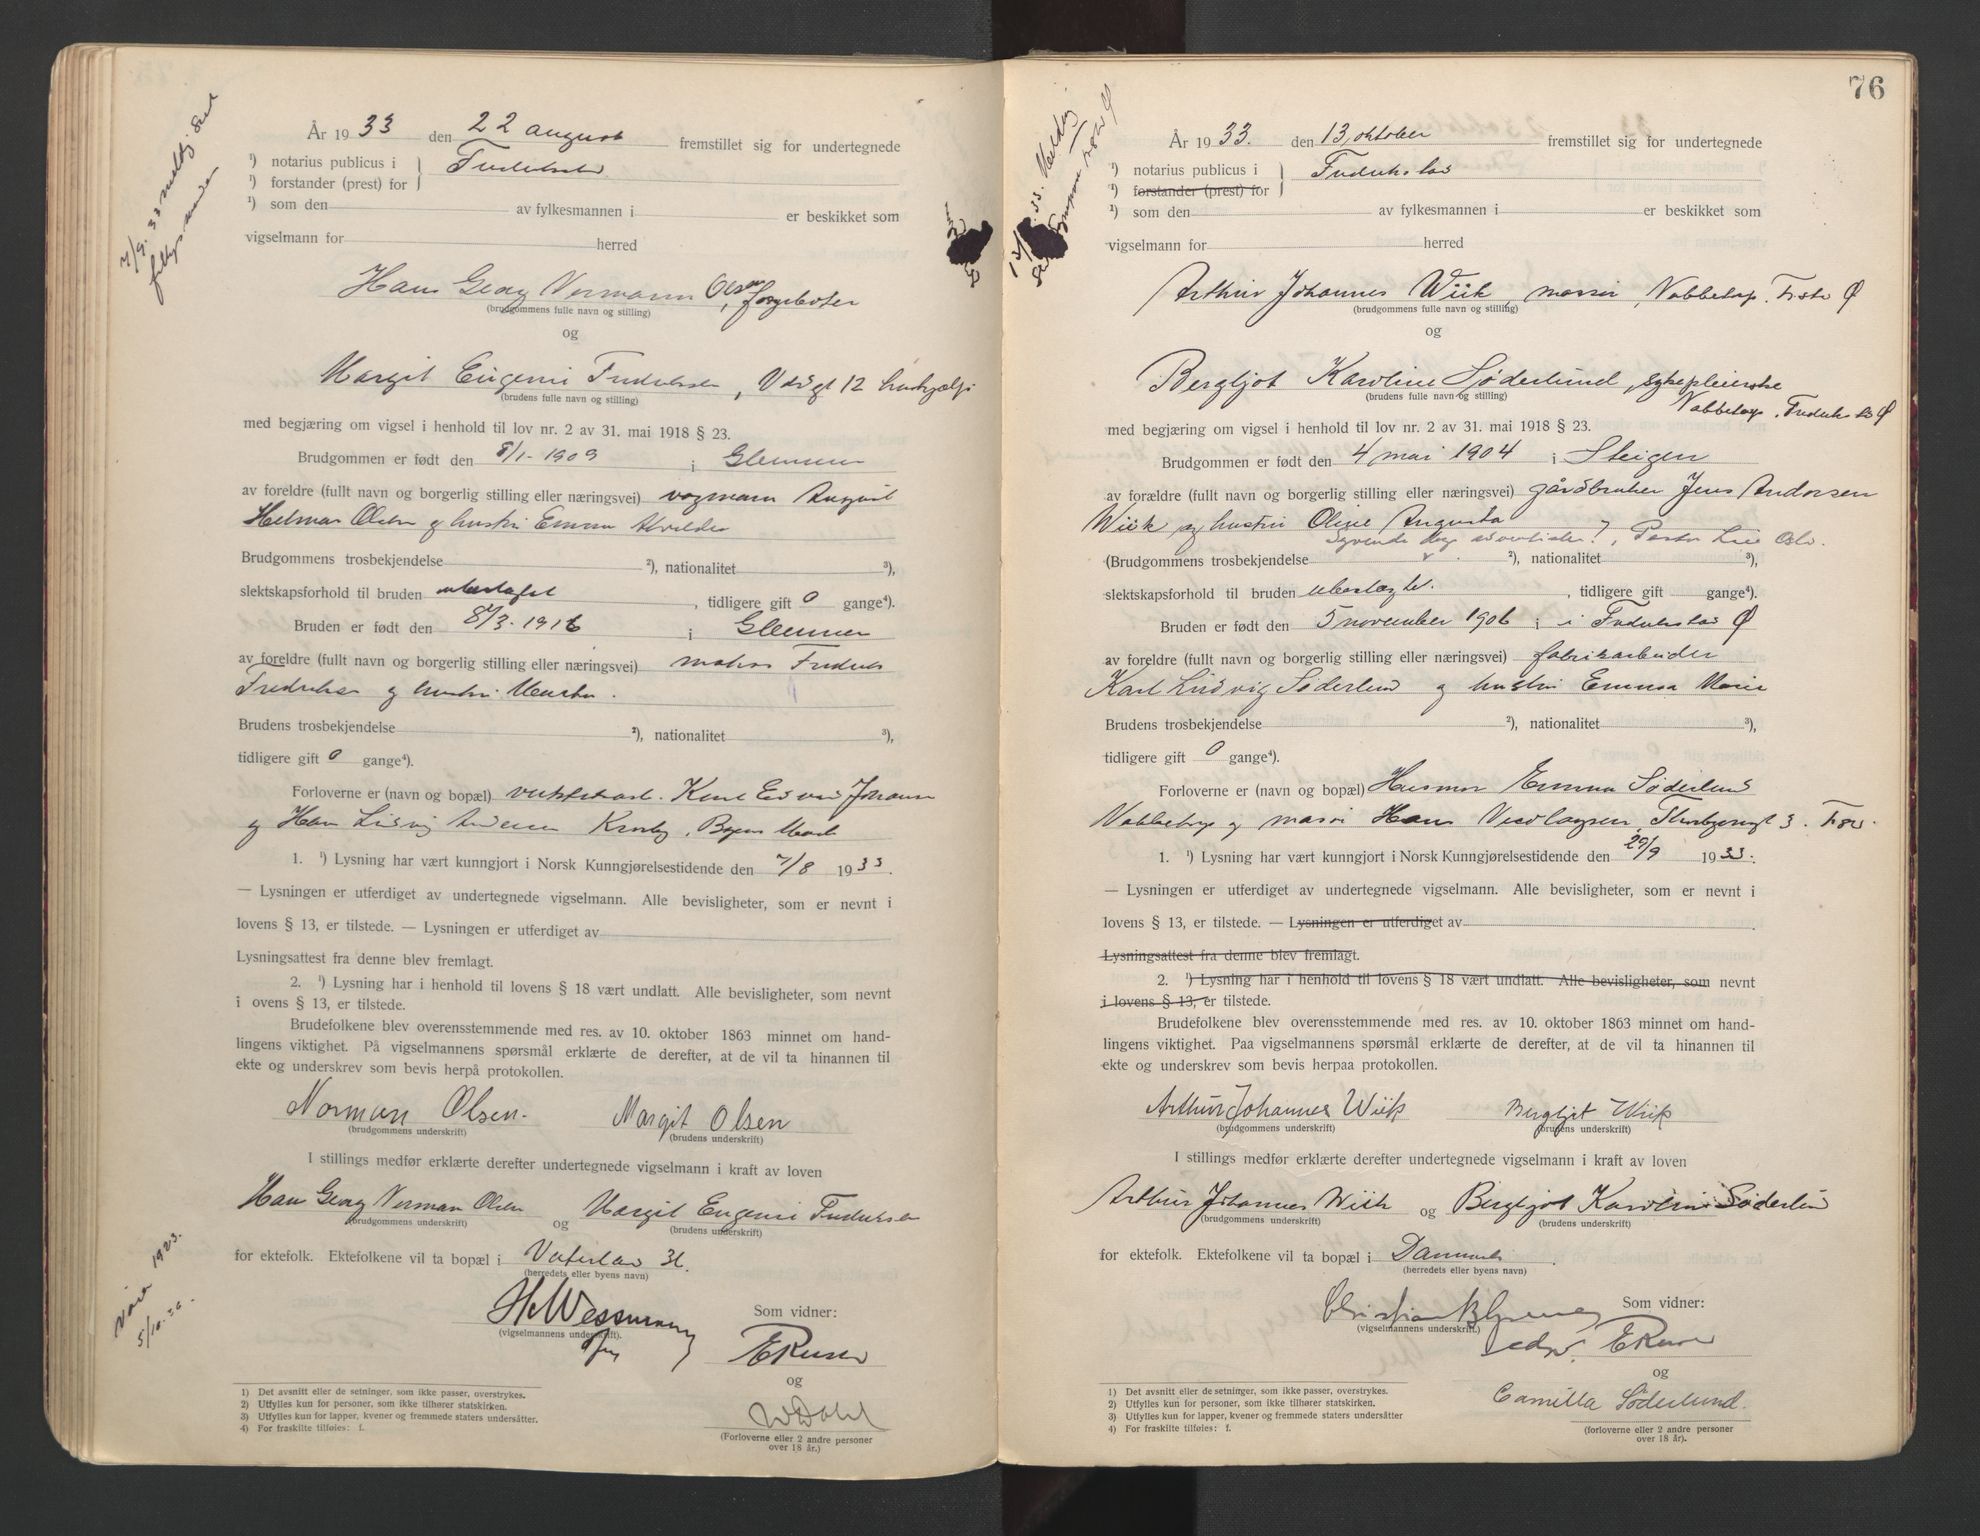 År 1933 den 22 august fremstillet sig for undertegnede
¹) notarius publicus i
¹) forstander (prest) for
¹) som den av fylkesmannen i er beskikket som
vigselmann for herred
Hans Georg Normann Olsen,
(brudgommens fulle navn og stilling)
og
Margit Eugenie Fredriksen, 12
(brudens fulle navn og stilling)
med begjæring om vigsel i henhold til lov nr. 2 av 31. mai 1918 § 23.
Brudgommen er født den 8/1-1909 i Glemmen
av foreldre (fullt navn og borgerlig stilling eller næringsvei) vognmann August
Helmer Olsen og hustru Emma
Brudgommens trosbekjendelse ²), nationalitet ³),
slektskapsforhold til bruden ubeslægtet, tidligere gift 0 gange⁴).
Bruden er født den 8/3-1916 i Glemmen
av foreldre (fullt navn og borgerlig stilling eller næringsvei) matros Fredrik
Fredriksen og hustru Martha.
Brudens trosbekjendelse ²), nationalitet ³),
tidligere gift 0 gange⁴).
Forloverne er (navn og bopæl)
og Hans Ludvig Andersen
1. ¹) Lysning har vært kunngjort i Norsk Kunngjørelsestidende den 7/8 1933.
— Lysningen er utferdiget av undertegnede vigselmann. Alle bevisligheter, som er nevnt i
lovens § 13, er tilstede. — Lysningen er utferdiget av
Lysningsattest fra denne blev fremlagt.
2. ¹) Lysning har i henhold til lovens § 18 vært undlatt. Alle bevisligheter, som nevnt
i ovens § 13, er tilstede.
Brudefolkene blev overensstemmende med res. av 10. oktober 1863 minnet om hand-
lingens viktighet. På vigselmannens spørsmål erklærte de derefter, at de vil ta hinannen til
ekte og underskrev som bevis herpå protokollen.
Norman Olsen. Margit Olsen
(brudgommens underskrift) (brudens underskrift)
I stillings medfør erklærte derefter undertegnede vigselmann i kraft av loven
Hans Georg Norman Olsen og Margit Eugenie Fredriksen
(brudgommens underskrift) (brudens underskrift)
for ektefolk. Ektefolkene vil ta bopæl i Vaterland 36.
(herredets eller byens navn)
(vigselmannens underskrift).
Som vidner:
og
W Dahl
(Forloverne eller 2 andre personer
over 18 år.)
1) Det avsnitt eller de setninger, som ikke passer, overstrykes.
2) Utfylles kun for personer, som ikke tilhører statskirken.
3) Utfylles kun for lapper, kvener og fremmede staters undersåtter.
4) For fraskilte tilføies: f.
5/10.36.
76
År 1933. den 13 oktober fremstillet sig for undertegnede
¹) notarius publicus i Fredrikstad
¹) forstander (prest) for
¹) som den av fylkesmannen i er beskikket som
vigselmann for herred
Arthur Johannes Wiik, massør, Nabbetorp. Fr.stad Ø
(brudgommens fulle navn og stilling)
og
Bergljot Karoline Søderlund, sykepleierske
(brudens fulle navn og stilling)
Nabbetorp. Fredrikstad Ø
med begjæring om vigsel i henhold til lov nr. 2 av 31. mai 1918 § 23.
Brudgommen er født den 4 mai 1904 i Steigen
av forældre (fullt navn og borgerlig stilling eller næringsvei) gårdbruker Jens Andorsen
Wiik og hustru Augusta
Syvende dags adventister?, Pastor Lie Oslo.
(Brudgommens trosbekjendelse ²), nationalitet ³),
slektskapsforhold til bruden ubeslægtet., tidligere gift gange⁴).
Bruden er født den 5 november 1906 i i Fredrikstad Ø
av foreldre (fullt navn og borgerlig stilling eller næringsvei) fabrikarbeider
Karl Ludvig Søderlund og hustru Emma Marie
Brudens trosbekjendelse ²), nationalitet ³),
tidligere gift 0 gange⁴).
Forloverne er (navn og bopæl) Husmor Emma Søderlund
Nabbetorp og massør Hans 3. Fr.stad.
1. ¹) Lysning har vært kunngjort i Norsk Kunngjørelsestidende den 29/9 1933.
— Lysningen er utferdiget av undertegnede vigselmann. Alle bevisligheter, som er nevnt i
lovens § 13, er tilstede. — Lysningen er utferdiget av
Lysningsattest fra denne blev fremlagt.
2. ¹) Lysning har i henhold til lovens § 18 vært undlatt. Alle bevisligheter, som nevnt
i lovens § 13, er tilstede.
Brudefolkene blev overensstemmende med res. av 10. oktober 1863 minnet om hand-
lingens viktighet. Paa vigselmannens spørsmål erklærte de derefter, at de vil ta hinannen til
ekte og underskrev som bevis herpaa protokollen.
Arthur Johannes Wiik Bergljot Wiik
(brudgommens underskrift) (brudens underskrift)
I stillings medfør erklærte derefter undertegnede vigselmann i kraft av loven
Arthur Johannes Wiik og Bergljot Karoline Søderlund
(brudgommens underskrift) (brudens underskrift)
for ektefolk. Ektefolkene vil ta bopæl i Danmark
(herredets eller byens navn)
(vigselmannens underskrift.)
Som vidner:
og
Camilla Søderlund.
(forloverne eller 2 andre personer
over 18 år).
1) Det avsnitt eller de setninger, som ikke passer, overstrykes.
2) Utfylles kun for personer, som ikke tilhører statskirken.
3) Utfylles kun for lapper, kvener og fremmede staters undersåtter
4) For fraskilte tilføies: f.